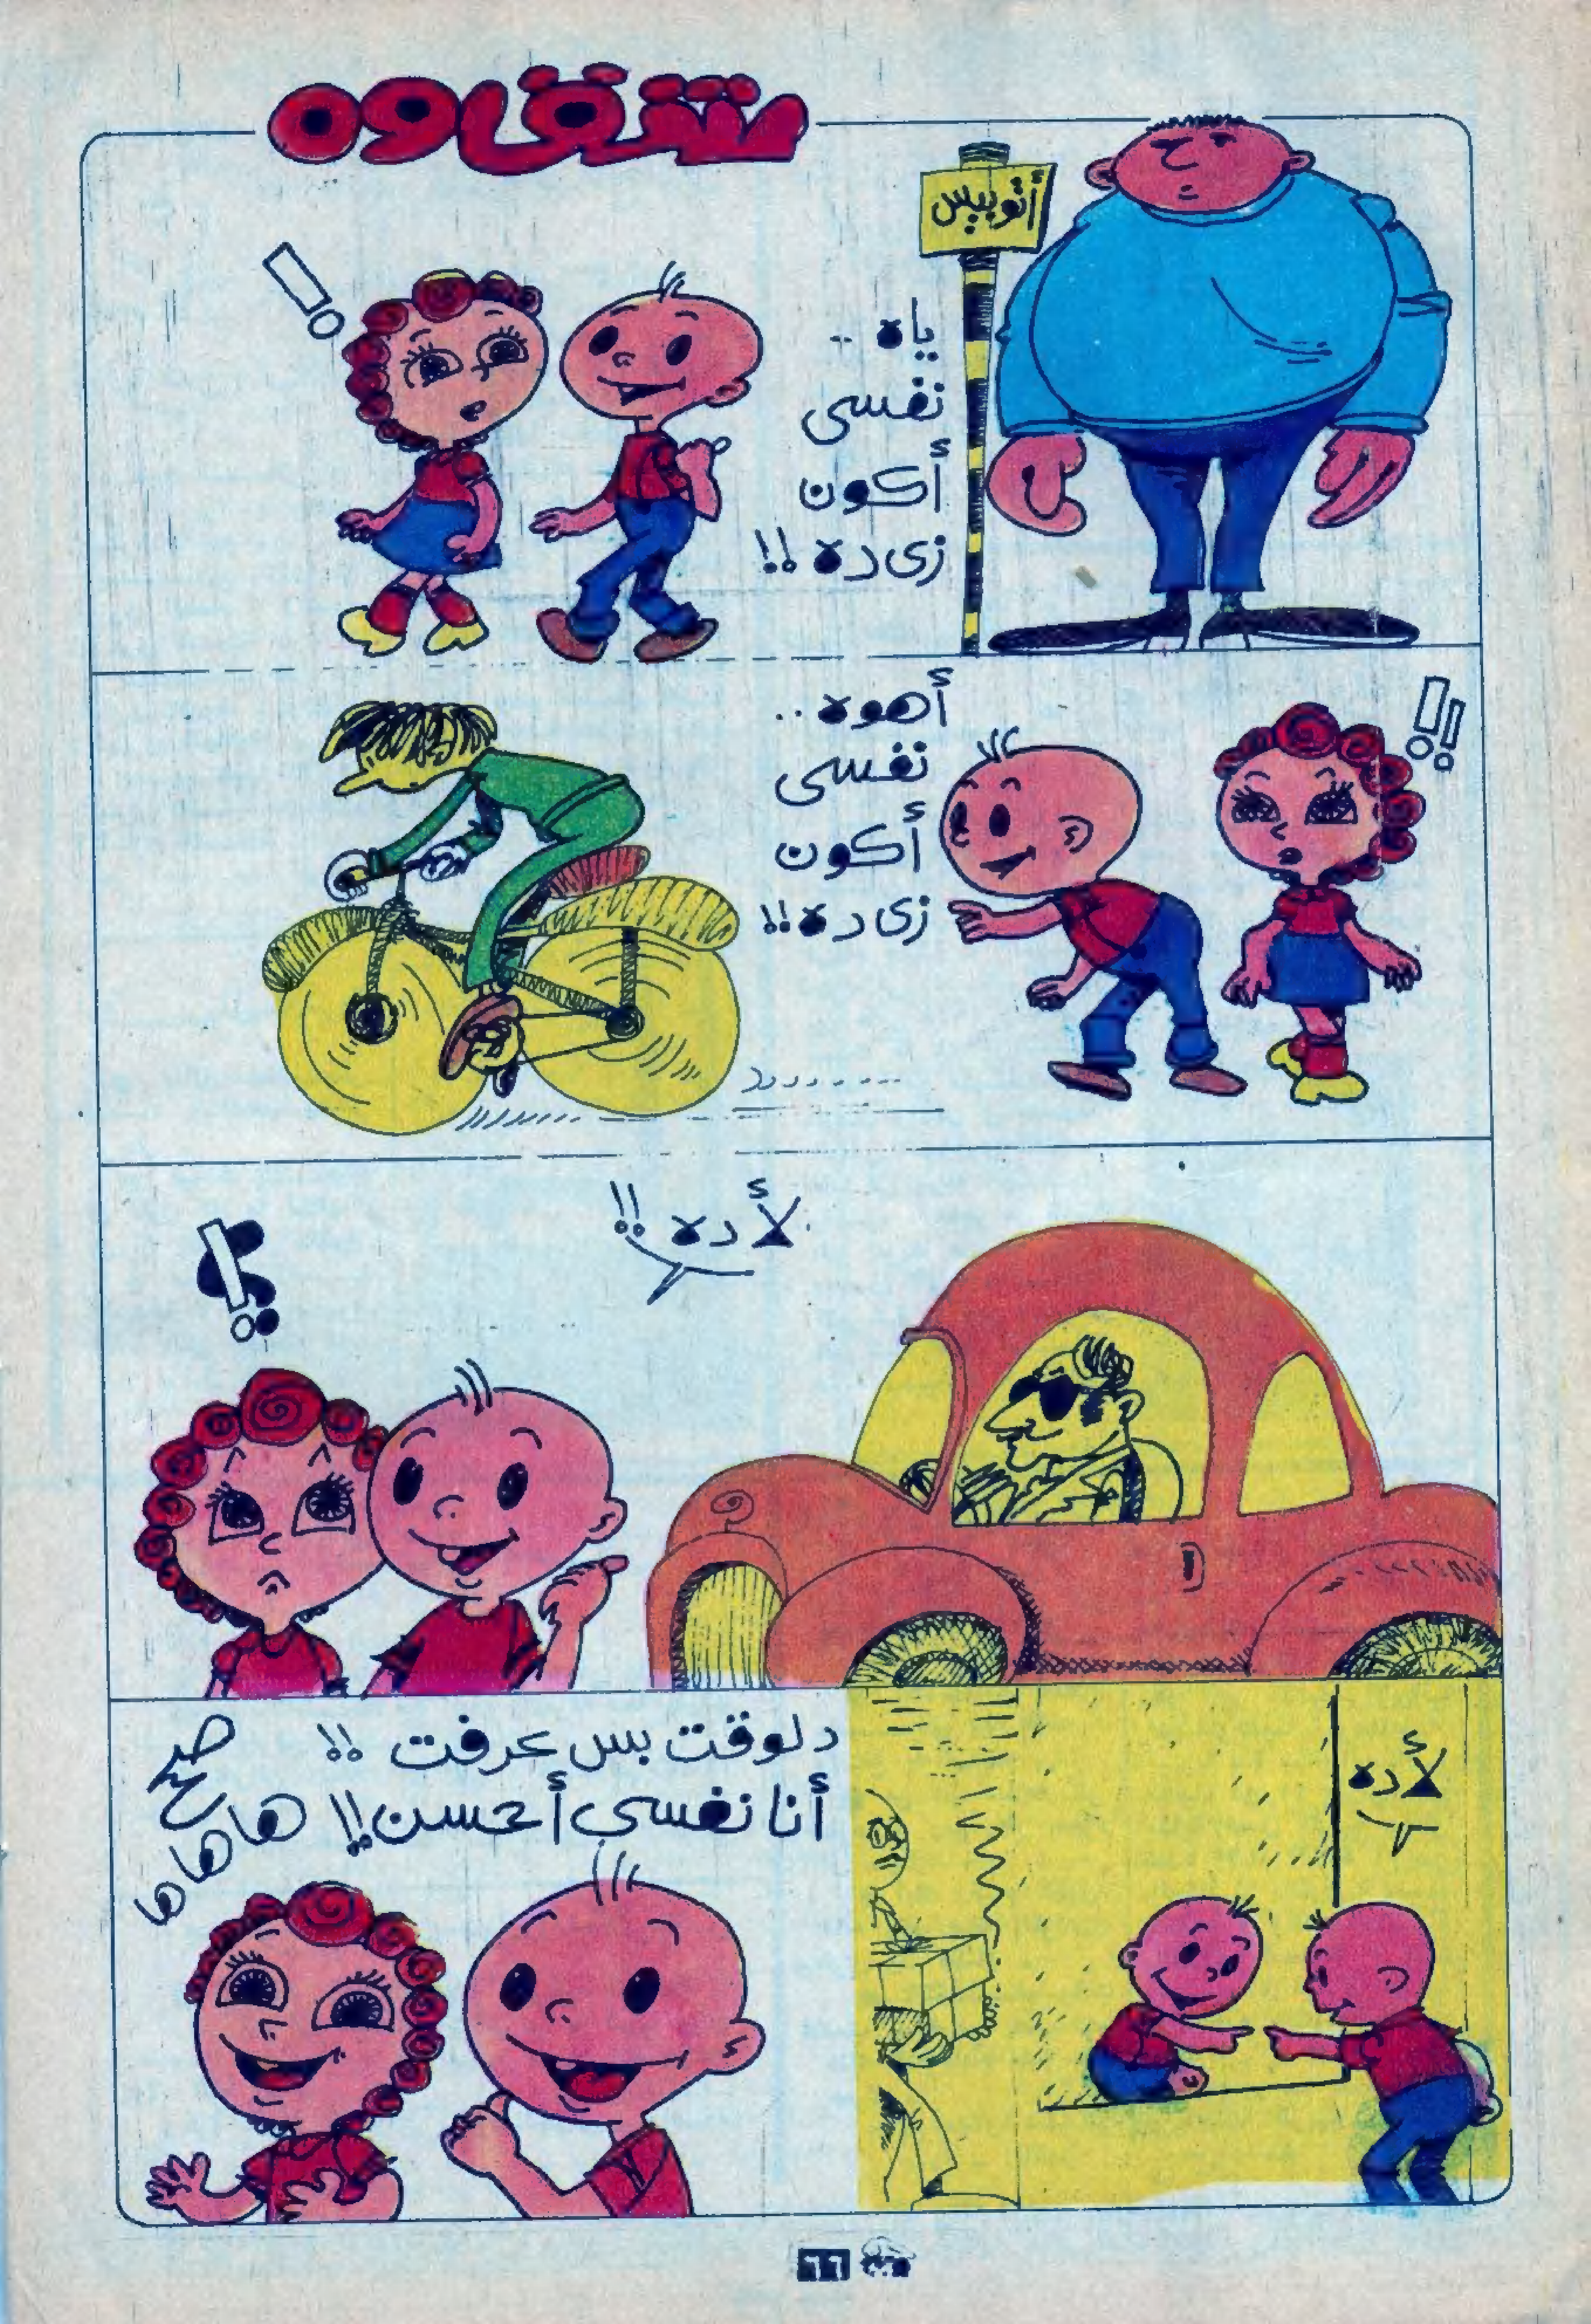 شقاوه
أتوبيس
ياه ..
نفسى
أكون
زى ده !!
أهوه ..
نفسى
أكون
زى ده !!
لأ ده !!
لأ ده
دلوقت بس عرفت !!
أنا نفسى أحسن !!
صح
ها ها ها
٦٦